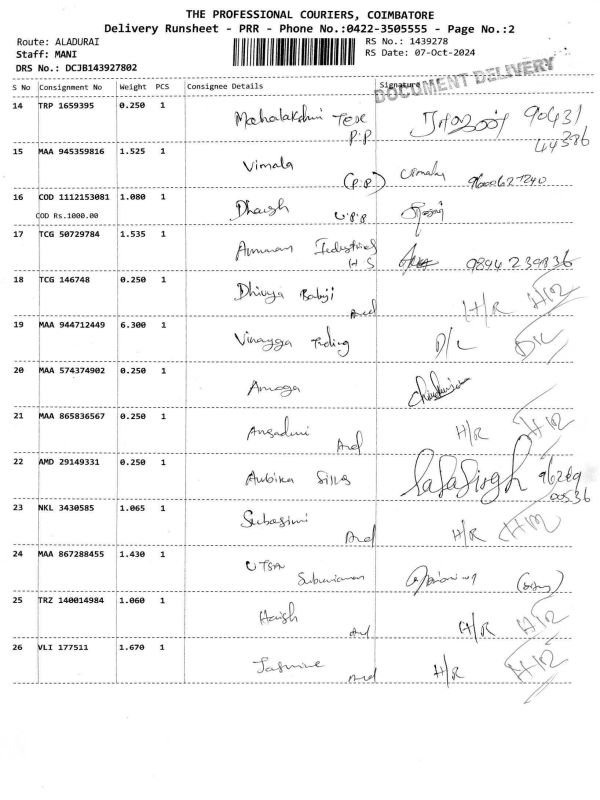 THE PROFESSIONAL COURIERS, COIMBATORE
Delivery Runsheet - PRR - Phone No.:0422-3505555 - Page No.:2
Route: ALADURAI RS No.: 1439278
Staff: MANI RS Date: 07-Oct-2024
DRS No.: DCJB143927802
DOCUMENT DELIVERY
S No Consignment No Weight PCS Consignee Details Signature
14 TRP 1659395 0.250 1 Mahalakshmi Tex 90431
P.P 44386
15 MAA 945359816 1.525 1 Vimala
(P.P) 9600627240
16 COD 1112153081 1.080 1
COD Rs.1000.00
17 TCG 50729784 1.535 1 Amman Industries
H S 9894239836
18 TCG 146748 0.250 1 Dhivya Balaji H/R
19 MAA 944712449 6.300 1 Vinayga Trading D/L D/L
20 MAA 574374902 0.250 1 Amoga
21 MAA 865836567 0.250 1 H/R
22 AMD 29149331 0.250 1 Ambika Silks 96269
00536
23 NKL 3430585 1.065 1 H/R
24 MAA 867288455 1.430 1
25 TRZ 140014984 1.060 1 Harish H/R
26 VLI 177511 1.670 1 Jasmine H/R